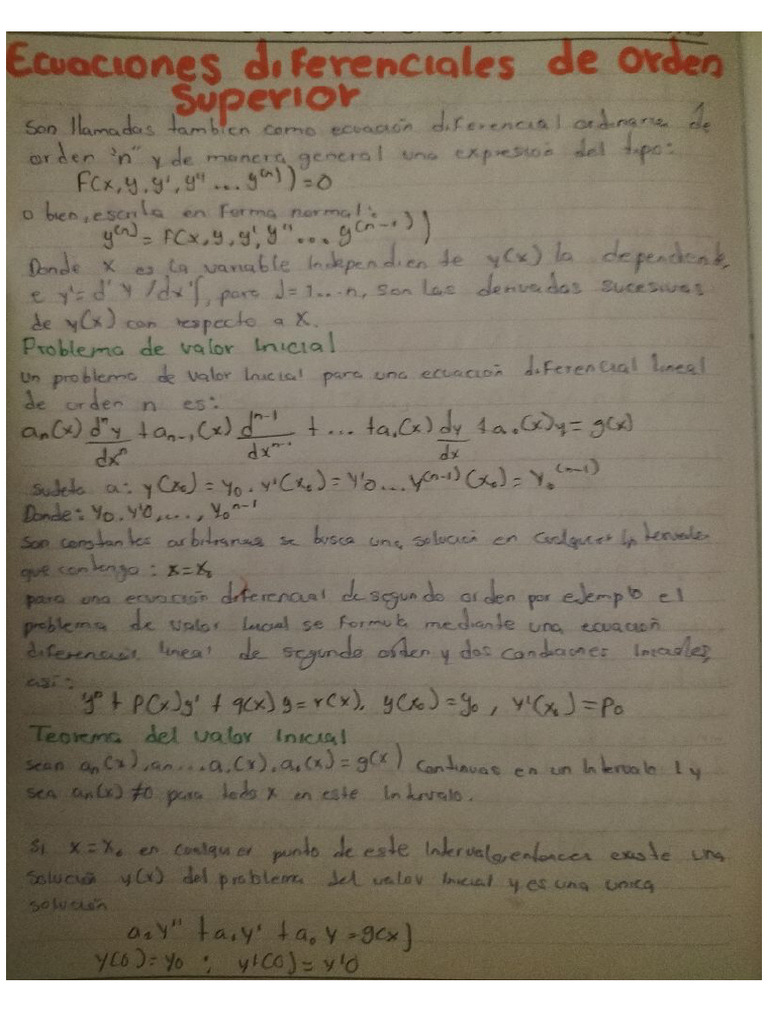 Ecuaciones diferenciales de orden
Superior
Son llamadas tambien como ecuación diferencial ordinaria de
orden "n" y de manera general una expresión del tipo:
F(x, y, y', y'' ... y^(n)) = 0
o bien, escrita en forma normal:
y^(n) = F(x, y, y', y'' ... y^(n-1))
Donde x es la variable Independiente y(x) la dependiente,
e y^j = d^j y / dx^j, para J = 1...n, son las derivadas sucesivas
de y(x) con respecto a x.
Problema de valor Inicial
un problema de valor Inicial para una ecuación diferencial lineal
de orden n es:
an(x) d^n y/dx^n + an-1(x) d^n-1/dx^n-1 + ... + a1(x) dy/dx + a0(x)y = g(x)
sujeta a: y(x0) = y0. y'(x0) = y'0 ... y^(n-1)(x0) = y0^(n-1)
Donde: y0. y'0, ..., y0^n-1
son constantes arbitrarias se busca una solución en cualquier Intervalo
que contenga: x = x0
para una ecuación diferencial de segundo orden por ejemplo el
problema de valor Inicial se formula mediante una ecuación
diferencial lineal de segundo orden y dos condiciones Iniciales,
así:
y'' + P(x)y' + q(x)y = r(x), y(x0) = y0, y'(x0) = P0
Teorema del valor Inicial
sean an(x), an... a1(x), a0(x) = g(x) continuas en un Intervalo I y
sea an(x) ≠ 0 para todo x en este Intervalo.
Si x = x0 en cualquier punto de este Intervalo, entonces existe una
solución y(x) del problema del valor Inicial y es una unica
solución
a2 y'' + a1 y' + a0 y = g(x)
y(0) = y0 ; y'(0) = y'0